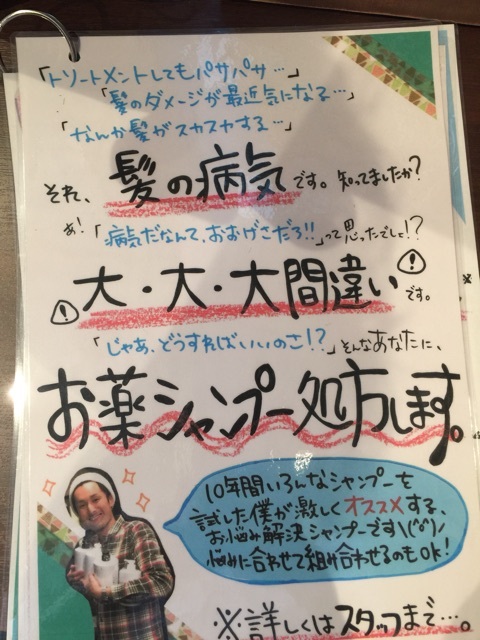 「トリートメントしてもパサパサ…」
「髪のダメージが最近気になる…」
「なんか髪がスカスカする…」
それ、髪の病気です。知ってましたか?
あ!「病気だなんて、おおげさだろ!!」って思ったでしょ!?
大・大・大間違いです。
「じゃあ、どうすればいいのさ!?」そんなあなたに、
お薬シャンプー処方します。
10年間いろんなシャンプーを
試した僕が激しくオススメする、
お悩み解決シャンプーです\(^o^)/
悩みに合わせて組み合わせるのもOK!
※詳しくはスタッフまで…。